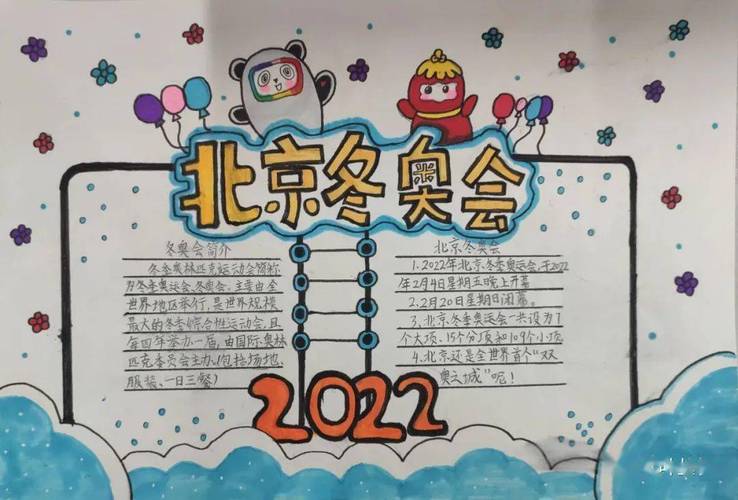 北京冬奥会
冬奥会简介
冬季奥林匹克运动会简称
为冬季奥运会、冬奥会。主要由全
世界地区举行,是世界规模
最大的冬季综合性运动会,且
每四年举办一届,由国际奥林
匹克委员会主办、(包括场地、
服装、一日三餐)
北京冬奥会
1.2022年北京冬季奥运会,于2022
年2月4日星期五晚上开幕
2.2月20日星期日闭幕。
3、北京冬季奥运会一共设为7
个大项、15个分项和109个小项
4、北京还是全世界首个“双
奥之城”呢!
2022